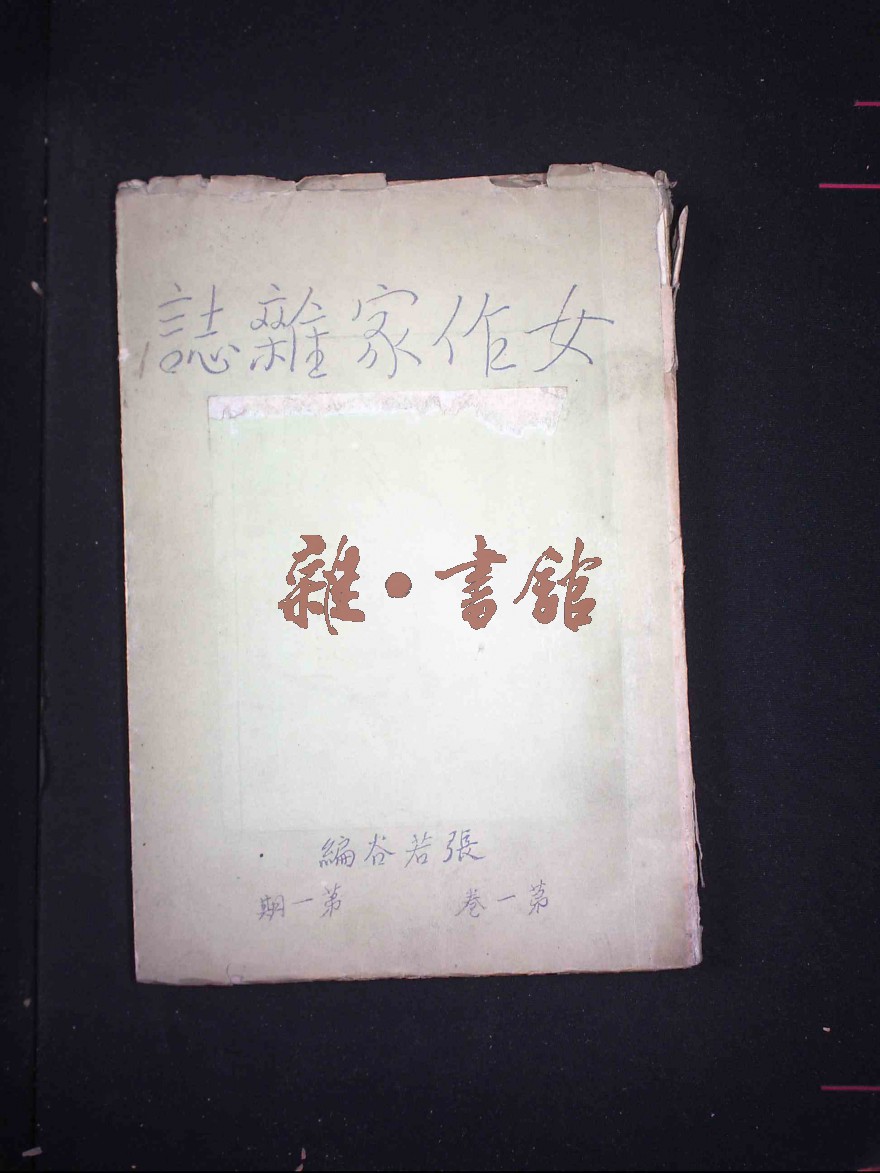 女作家雜誌
雜·書館
張若谷編
第一卷 第一期